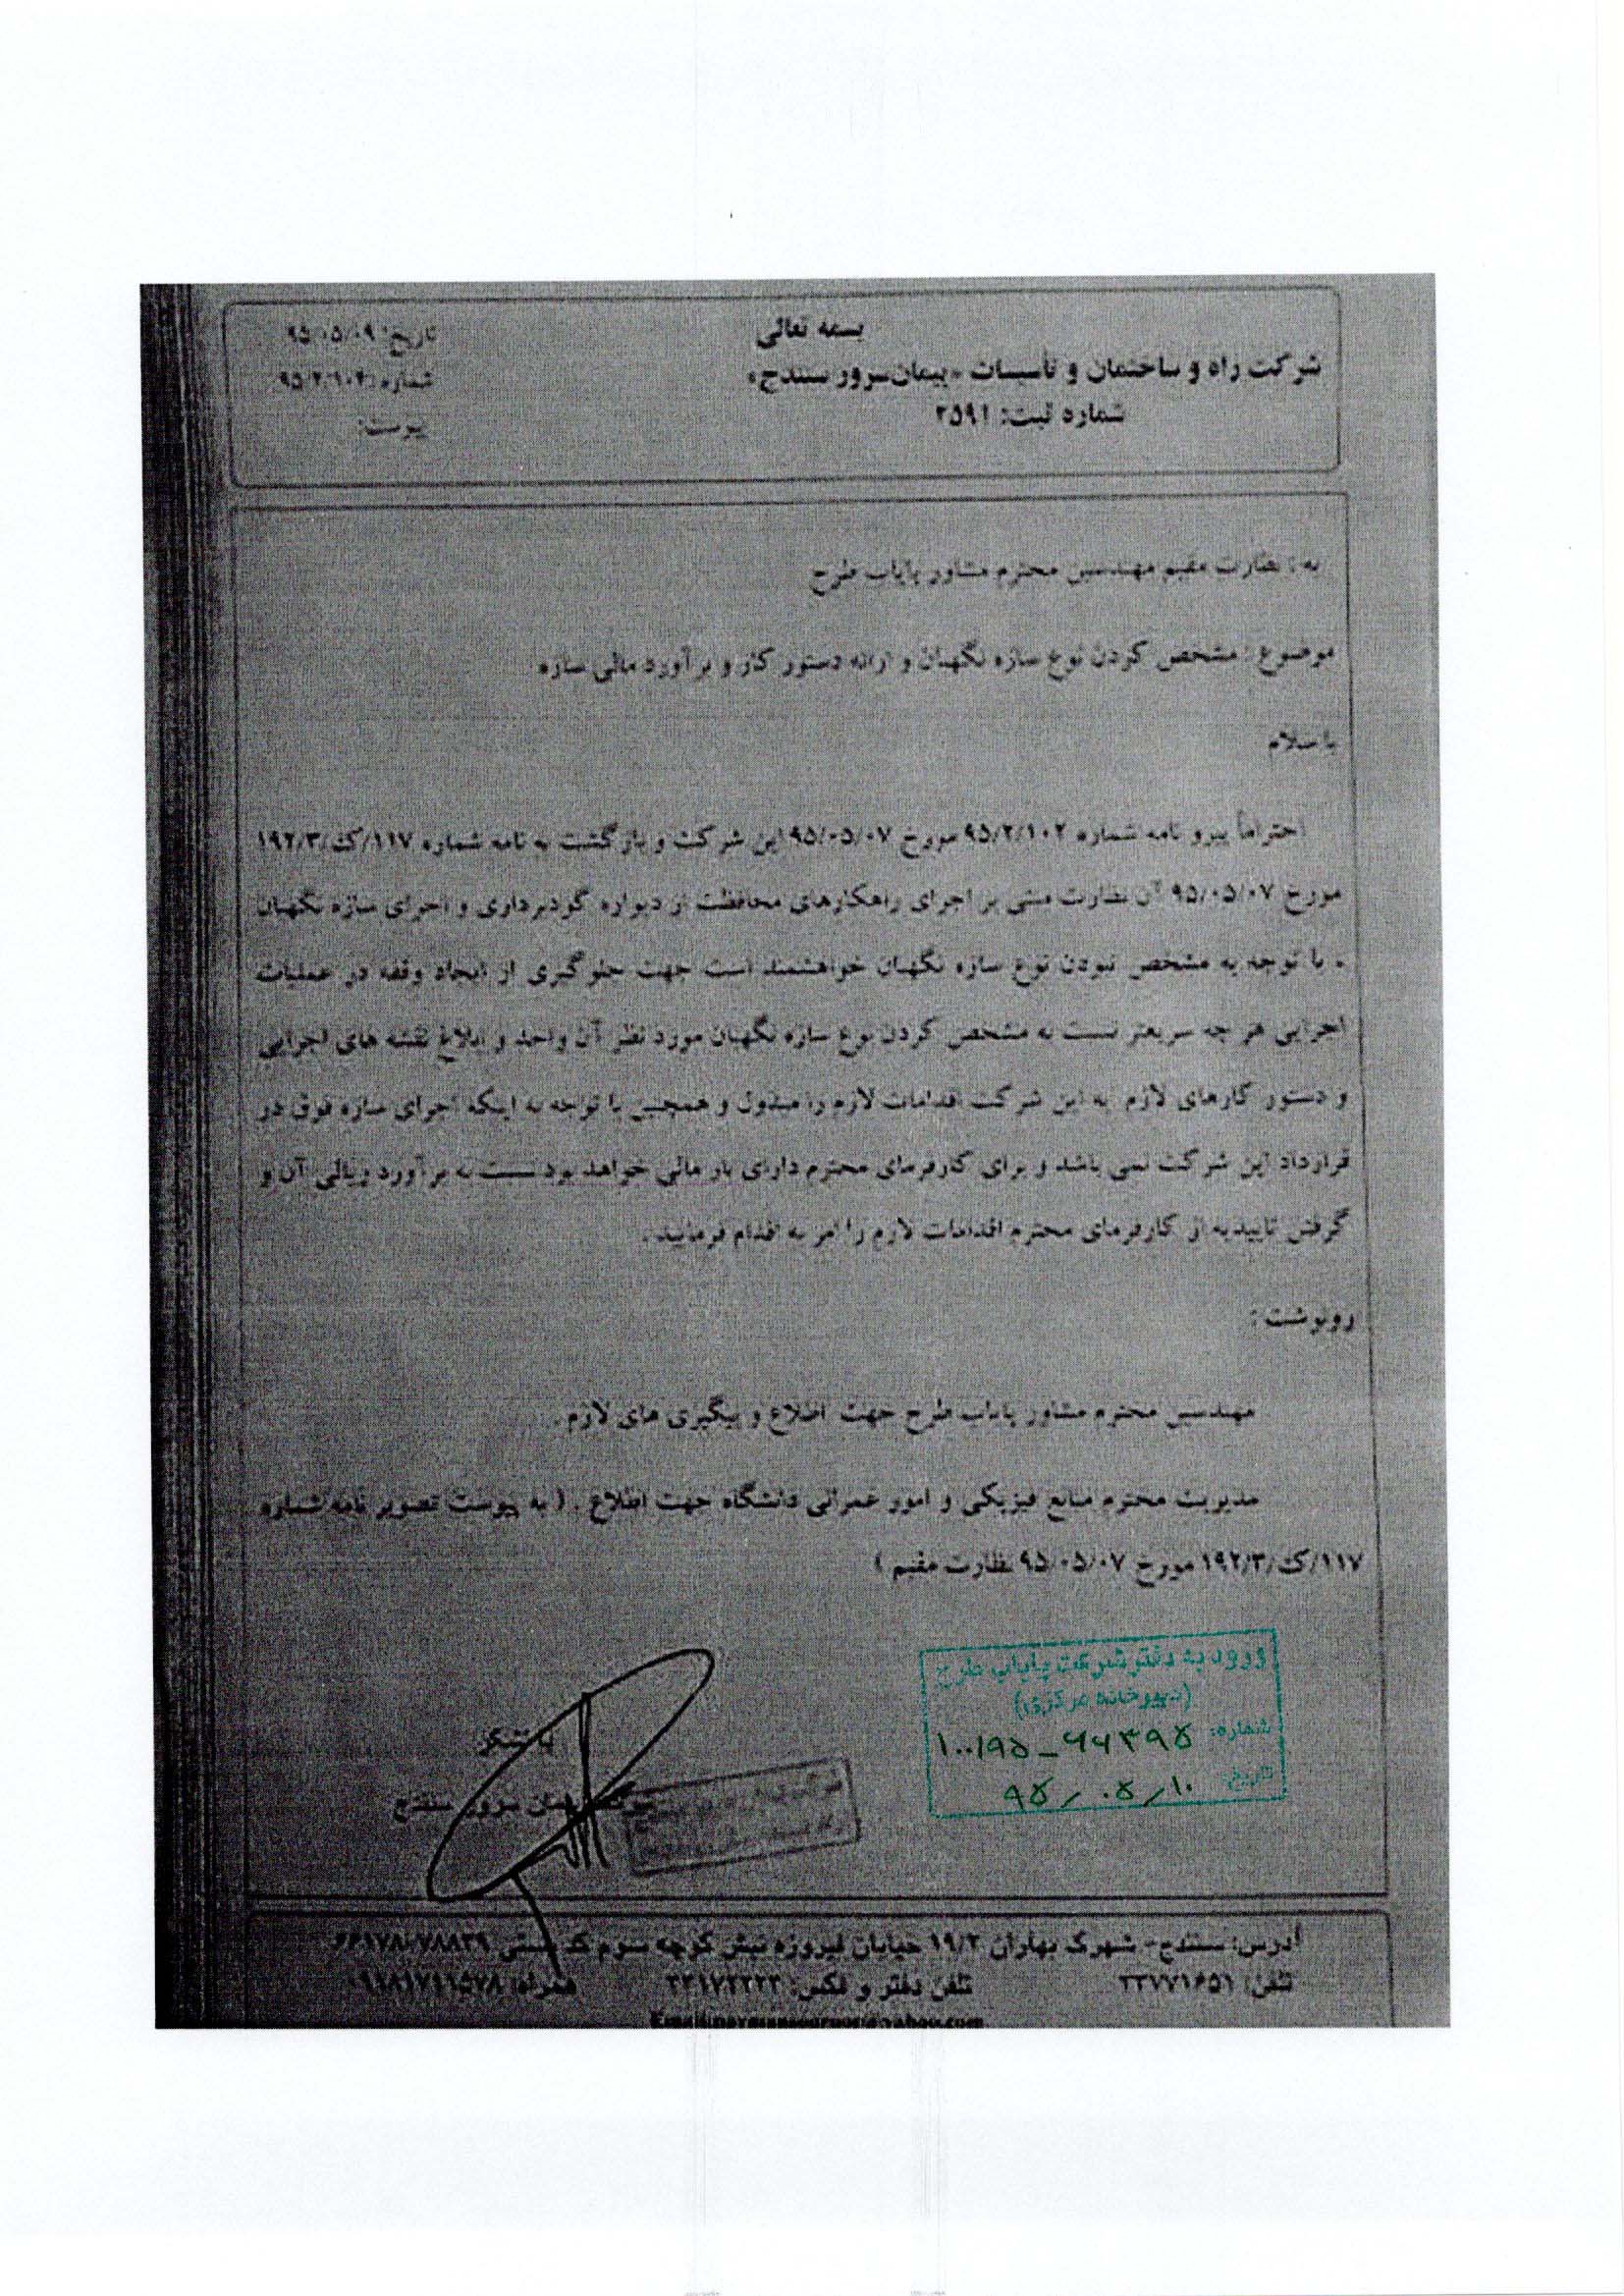 بسمه تعالی
شرکت راه و ساختمان و تأسیسات «پیمان‌سرور سنندج»
شماره ثبت: ۲۵۹۱
تاریخ: ۹۵/۰۵/۰۹
شماره:
پیوست:
به : نظارت مقیم مهندسین محترم مشاور پایاب طرح
موضوع : مشخص کردن نوع سازه نگهبان و ارائه دستور کار و برآورد مالی سازه
با سلام
احتراماً پیرو نامه شماره ۹۵/۲/۱۰۲ مورخ ۹۵/۰۵/۰۷ این شرکت و بازگشت به نامه شماره ۱۱۷/ک/۱۹۲/۳
مورخ ۹۵/۰۵/۰۷ آن نظارت مبنی بر اجرای راهکارهای محافظت از دیواره گودبرداری و اجرای سازه نگهبان
، با توجه به مشخص نبودن نوع سازه نگهبان خواهشمند است جهت جلوگیری از ایجاد وقفه در عملیات
اجرایی هر چه سریعتر نسبت به مشخص کردن نوع سازه نگهبان مورد نظر آن واحد و ابلاغ نقشه های اجرایی
و دستور کارهای لازم به این شرکت اقدامات لازم را مبذول و همچنین با توجه به اینکه اجرای سازه فوق در
قرارداد این شرکت نمی باشد و برای کارفرمای محترم دارای بار مالی خواهد بود نسبت به برآورد ریالی آن و
گرفتن تاییدیه از کارفرمای محترم اقدامات لازم را امر به اقدام فرمایید .
رونوشت :
مهندسین محترم مشاور پایاب طرح جهت اطلاع و پیگیری های لازم .
مدیریت محترم منابع فیزیکی و امور عمرانی دانشگاه جهت اطلاع . ( به پیوست تصویر نامه شماره
۱۱۷/ک/۱۹۲/۳ مورخ ۹۵/۰۵/۰۷ نظارت مقیم )
ورود به دفتر شرکت پایاب طرح
(دبیرخانه مرکزی)
شماره: ۱۰۰/۹۵-۶۶۳۹۵
تاریخ: ۹۵/۰۵/۱۰
با تشکر
شرکت پیمان سرور سنندج
آدرس: سنندج- شهرک بهاران ۱۹/۲ خیابان فیروزه نبش کوچه سوم کد پستی
تلفن: ۳۳۷۷۱۶۵۱ تلفن دفتر و فکس: ۳۳۱۷۲۳۲۳ همراه: